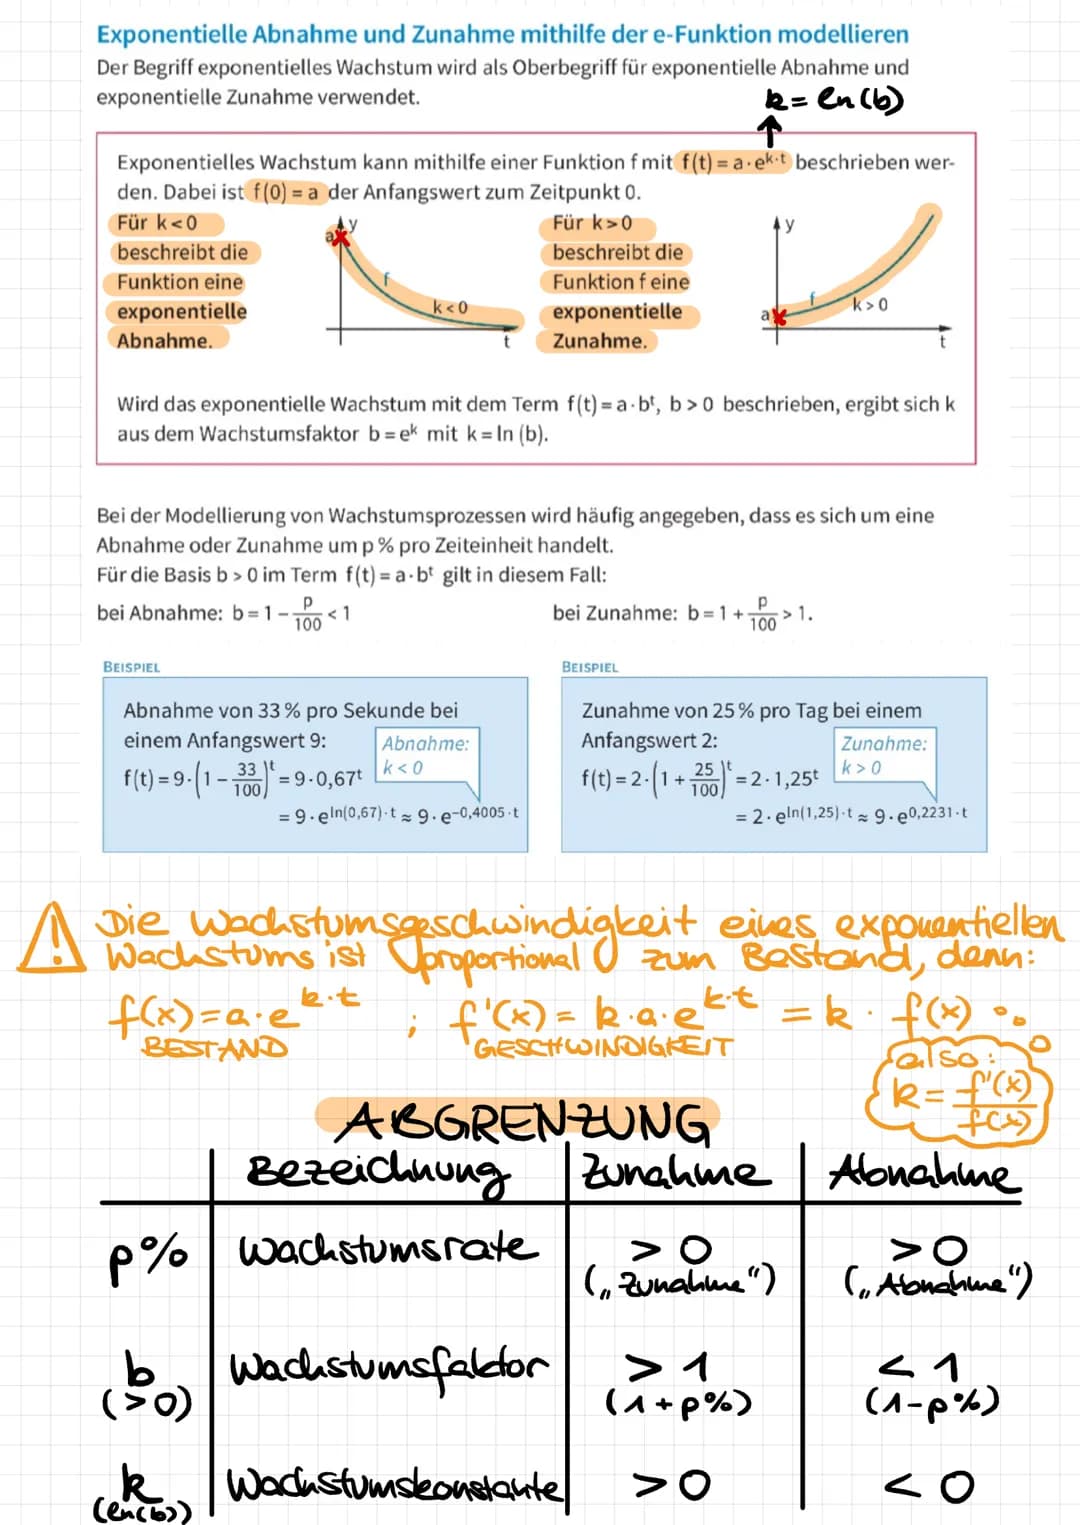 Exponentielle Abnahme und Zunahme mithilfe der e-Funktion modellieren
Der Begriff exponentielles Wachstum wird als Oberbegriff für exponentielle Abnahme und
exponentielle Zunahme verwendet.
k = ln(b)
Exponentielles Wachstum kann mithilfe einer Funktion f mit f(t) = a·e^(k·t) beschrieben wer-
den. Dabei ist f(0) = a der Anfangswert zum Zeitpunkt 0.
Für k < 0
beschreibt die
Funktion eine
exponentielle
Abnahme.
a
y
f
k < 0
t
Für k > 0
beschreibt die
Funktion f eine
exponentielle
Zunahme.
y
a
f
k > 0
t
Wird das exponentielle Wachstum mit dem Term f(t) = a·b^t, b > 0 beschrieben, ergibt sich k
aus dem Wachstumsfaktor b = e^k mit k = ln (b).
Bei der Modellierung von Wachstumsprozessen wird häufig angegeben, dass es sich um eine
Abnahme oder Zunahme um p % pro Zeiteinheit handelt.
Für die Basis b > 0 im Term f(t) = a·b^t gilt in diesem Fall:
bei Abnahme: b = 1 − p/100 < 1
bei Zunahme: b = 1 + p/100 > 1.
BEISPIEL
Abnahme von 33 % pro Sekunde bei
einem Anfangswert 9:
Abnahme:
k < 0
f(t) = 9·(1 − 33/100)^t = 9·0,67^t
= 9·e^(ln(0,67)·t) ≈ 9·e^(−0,4005·t)
BEISPIEL
Zunahme von 25 % pro Tag bei einem
Anfangswert 2:
Zunahme:
k > 0
f(t) = 2·(1 + 25/100)^t = 2·1,25^t
= 2·e^(ln(1,25)·t) ≈ 9·e^(0,2231·t)
! Die Wachstumsgeschwindigkeit eines exponentiellen
Wachstums ist proportional zum Bestand, denn:
f(x) = a·e^(k·t) ; f'(x) = k·a·e^(k·t) = k · f(x)
BESTAND GESCHWINDIGKEIT
also:
k = f'(x)/f(x)
ABGRENZUNG
Bezeichnung Zunahme Abnahme
p% Wachstumsrate > 0 > 0
(„Zunahme“) („Abnahme“)
b Wachstumsfaktor > 1 < 1
(>0) (1+p%) (1-p%)
k Wachstumskonstante > 0 < 0
(ln(b))